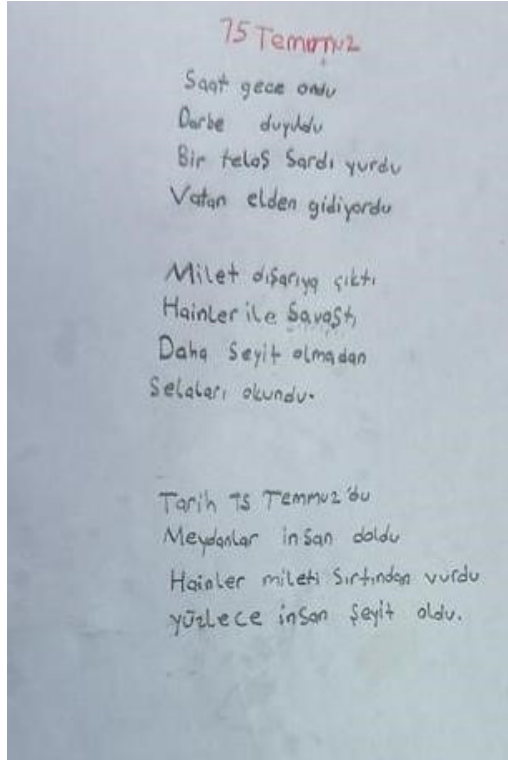 15 Temmuz
Saat gece ondu
Darbe duyuldu
Bir telaş Sardı yurdu
Vatan elden gidiyordu
Milet dışarıya çıktı
Hainler ile Savaştı
Daha Seyit olmadan
Selaları okundu.
Tarih 15 Temmuz'du
Meydanlar insan doldu
Hainler mileti Sırtından vurdu
yüzlece insan Şeyit oldu.